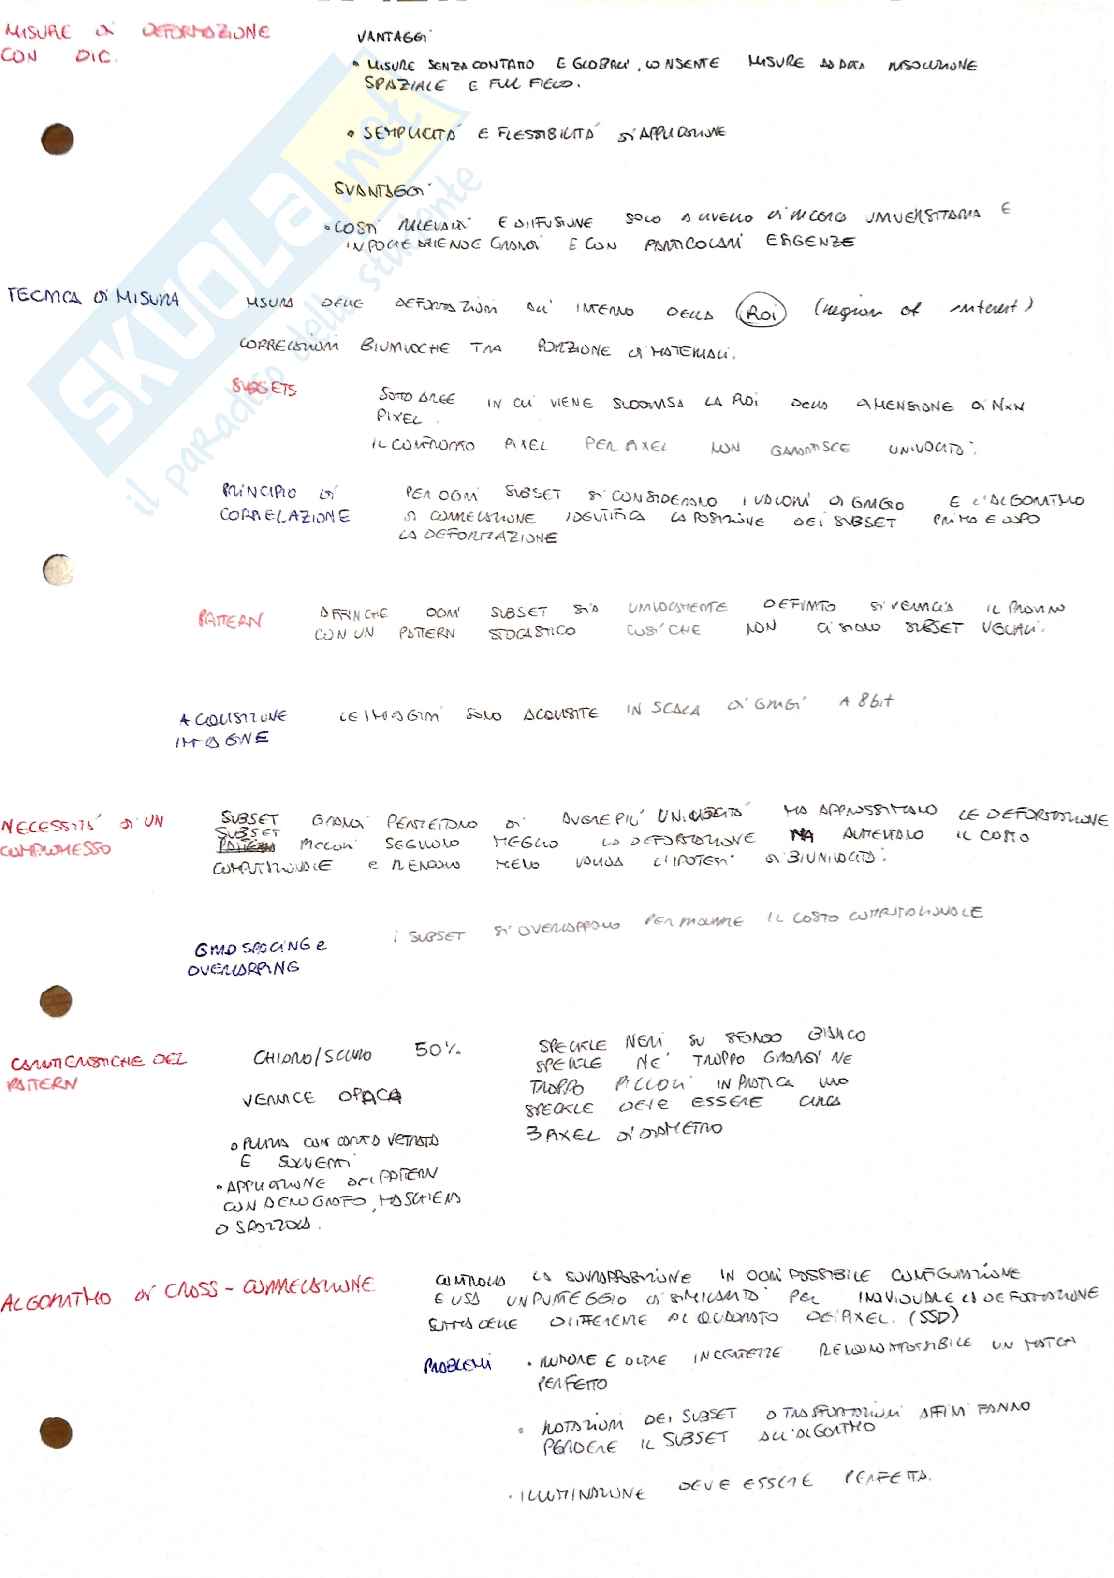 MISURE DI DEFORMAZIONE
CON DIC.
VANTAGGI
• MISURE SENZA CONTATTO E GLOBALI, CONSENTE MISURE AD ALTA RISOLUZIONE
SPAZIALE E FULL FIELD.
• SEMPLICITA' E FLESSIBILITA' DI APPLICAZIONE
SVANTAGGI
• COSTI RILEVANTI E DIFFUSIONE SOLO A LIVELLO DI RICERCA UNIVERSITARIA E
IN POCHE AZIENDE GRANDI E CON PARTICOLARI ESIGENZE
TECNICA DI MISURA
MISURA DELLE DEFORMAZIONI ALL'INTERNO DELLA ROI (region of interest)
CORRELAZIONI BIUNIVOCHE TRA PORZIONE DI MATERIALI.
SUBSETS
SOTTO AREE IN CUI VIENE SUDDIVISA LA ROI DELLA DIMENSIONE DI NxN
PIXEL.
IL CONFRONTO PIXEL PER PIXEL NON GARANTISCE UNIVOCITA'.
PRINCIPIO DI
CORRELAZIONE
PER OGNI SUBSET SI CONSIDERANO I VALORI DI GRIGIO E L'ALGORITMO
DI CORRELAZIONE IDENTIFICA LA POSIZIONE DEI SUBSET PRIMA E DOPO
LA DEFORMAZIONE
PATTERN
AFFINCHE OGNI SUBSET SIA UNIVOCAMENTE DEFINITO SI VERNICIA IL PROVINO
CON UN PATTERN STOCASTICO COSI' CHE NON CI SIANO SUBSET UGUALI.
ACQUISIZIONE
IMMAGINE
LE IMMAGINI SONO ACQUISITE IN SCALA DI GRIGI A 8bit
NECESSITA' DI UN
COMPROMESSO
SUBSET GRANDI PERMETTONO DI AVERE PIU' UNIVOCITA' MA APPROSSIMANO LE DEFORMAZIONE
SUBSET
PATTERN PICCOLI SEGUONO MEGLIO LA DEFORMAZIONE MA AUMENTANO IL COSTO
COMPUTAZIONALE e RENDONO MENO VALIDA L'IPOTESI DI BIUNIVOCITA'.
GRID SPACING e
OVERLAPPING
I SUBSET SI OVERLAPPANO PER RIDURRE IL COSTO COMPUTAZIONALE
CARATTERISTICHE DEL
PATTERN
CHIARO/SCURO 50%
VERNICE OPACA
• PULIZIA CON CARTA VETRATA
E SOLVENTI
• APPLICAZIONE DEL PATTERN
CON AEROGRAFO, MASCHERA
O SPAZZOLA.
SPECKLE NERI SU SFONDO BIANCO
SPECKLE NE' TROPPO GRANDI NE
TROPPO PICCOLI IN PRATICA UNO
SPECKLE DEVE ESSERE CIRCA
3 PIXEL DI DIAMETRO
ALGORITMO DI CROSS-CORRELAZIONE
CONTROLLA LA SOVRAPPOSIZIONE IN OGNI POSSIBILE CONFIGURAZIONE
E USA UN PUNTEGGIO DI SIMILARITA' PER INDIVIDUARE LA DEFORMAZIONE
SOMMA DELLE DIFFERENZE AL QUADRATO DEI PIXEL. (SSD)
PROBLEMI
• RUMORE E OLTRE INCERTEZZE RENDONO IMPOSSIBILE UN MATCH
PERFETTO
• ROTAZIONI DEI SUBSET O TRASFORMAZIONI AFFINI FANNO
PERDERE IL SUBSET ALL'ALGORITMO
• ILLUMINAZIONE DEVE ESSERE PERFETTA.
SKUOLA.net
il paradiso dello studente